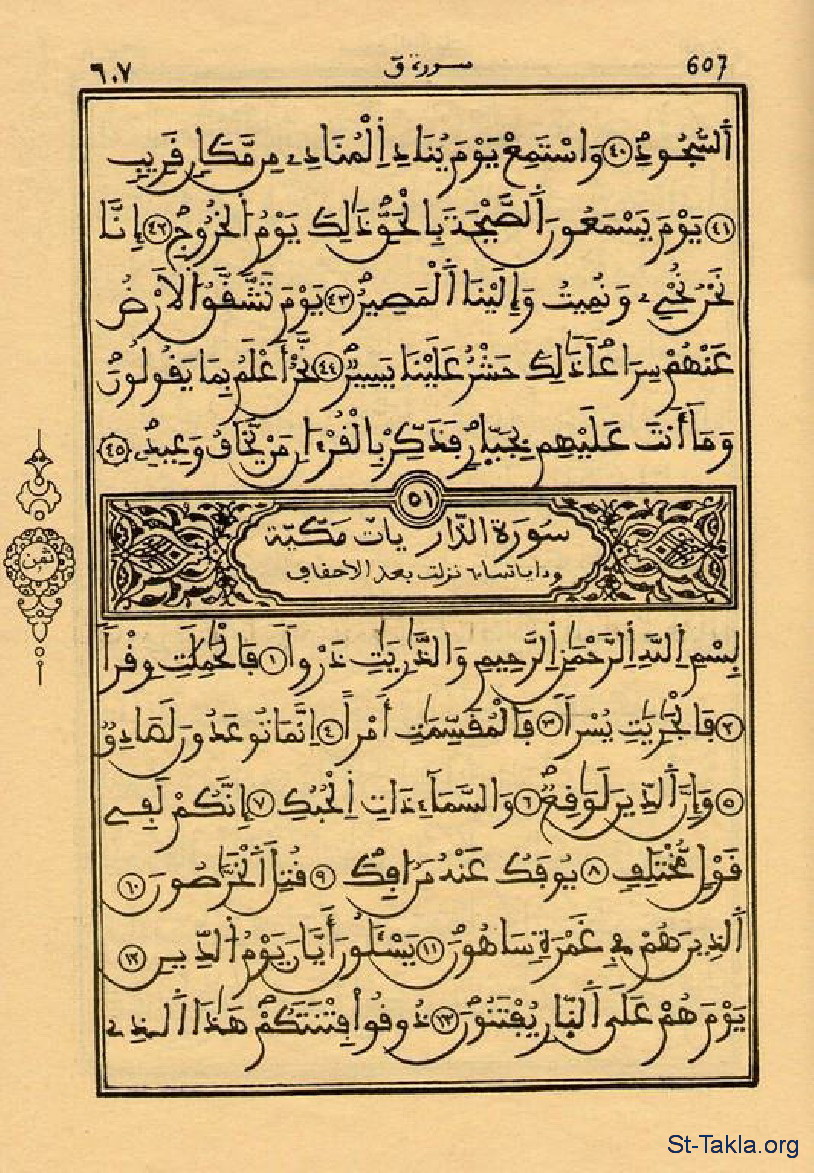 ٦٠٧ سورة ق 607
اَ۬لسُّجُودِۖ ٤٠ وَاسْتَمِعْ يَوْمَ يُنَادِ اِ۬لْمُنَادِۦ مِن مَّكَانٖ قَرِيبٖ
٤١ يَوْمَ يَسْمَعُونَ اَ۬لصَّيْحَةَ بِالْحَقِّ ذَٰلِكَ يَوْمُ اُ۬لْخُرُوجِۖ ٤٢ إِنَّا
نَحْنُ نُحْيِۦ وَنُمِيتُ وَإِلَيْنَا اَ۬لْمَصِيرُۖ ٤٣ يَوْمَ تَشَّقَّقُ اُ۬لْأَرْضُ
عَنْهُمْ سِرَاعاٗ ذَٰلِكَ حَشْرٌ عَلَيْنَا يَسِيرٞۖ ٤٤ نَّحْنُ أَعْلَمُ بِمَا يَقُولُونَ
وَمَا أَنتَ عَلَيْهِم بِجَبّ۪ارٖ فَذَكِّرْ بِالْقُرْءَانِ مَنْ يَّخَافُ وَعِيدِۦ ٤٥
٥١
سورة الذاريات مكية
وءاياتها ٦٠ نزلت بعد الأحقاف
ثمن
بِسْمِ اِ۬للَّهِ اِ۬لرَّحْمَٰنِ اِ۬لرَّحِيمِ وَالذَّٰرِيَٰتِ ذَرْواٗ ١ فَالْحَٰمِلَٰتِ وِقْراٗ
٢ فَالْجَٰرِيَٰتِ يُسْراٗ ٣ فَالْمُقَسِّمَٰتِ أَمْراً ٤ اِنَّمَا تُوعَدُونَ لَصَادِقٞ
٥ وَإِنَّ اَ۬لدِّينَ لَوَٰقِعٞۖ ٦ وَالسَّمَآءِ ذَاتِ اِ۬لْحُبُكِ ٧ إِنَّكُمْ لَفِے
قَوْلٖ مُّخْتَلِفٖ ٨ يُوفَكُ عَنْهُ مَنْ ا۟فِكَۖ ٩ قُتِلَ اَ۬لْخَرَّٰصُونَ ١٠
اَ۬لذِينَ هُمْ فِے غَمْرَةٖ سَاهُونَ ١١ يَسْـَٔلُونَ أَيَّانَ يَوْمُ اُ۬لدِّينِ ١٢
يَوْمَ هُمْ عَلَى اَ۬لنّ۪ارِ يُفْتَنُونَۖ ١٣ ذُوقُواْ فِتْنَتَكُمْ هَٰذَا اَ۬لذِے
St-Takla.org